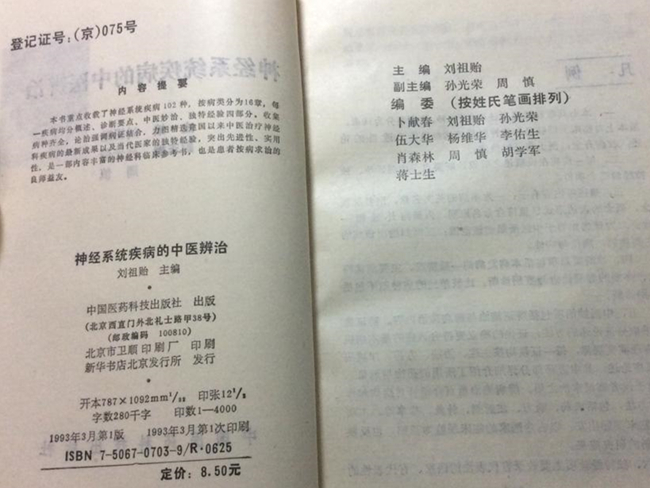 登记证号：(京)075号
内容提要
本书重点收载了神经系统疾病102种，按病类分为16章，每
一疾病均分概述、诊断要点、中医妙治、独特经验四部分，收集
病种齐全，论治强调病证结合，力图精选我国以来中医治疗神经
科疾病的最新成果以及当代医家的独特经验，突出先进性、实用
性，是一部内容丰富的神经科临床参考书，也是患者按病求治的
良师益友。
神经系统疾病的中医辨治
刘祖贻 主编
中国医药科技出版社 出版
(北京西直门外北礼士路甲38号)
(邮政编码 100810)
北京市卫顺印刷厂 印刷
新华书店北京发行所 发行
开本787×1092mm 1/32 印张12 1/2
字数280千字 印数1-4000
1993年3月第1版 1993年3月第1次印刷
ISBN 7-5067-0703-9/R·0625
定价：8.50元
主编 刘祖贻
副主编 孙光荣 周慎
编委 (按姓氏笔画排列)
卜献春 刘祖贻 孙光荣
伍大华 杨维华 李佑生
肖森林 周慎 胡学军
蒋士生
凡例